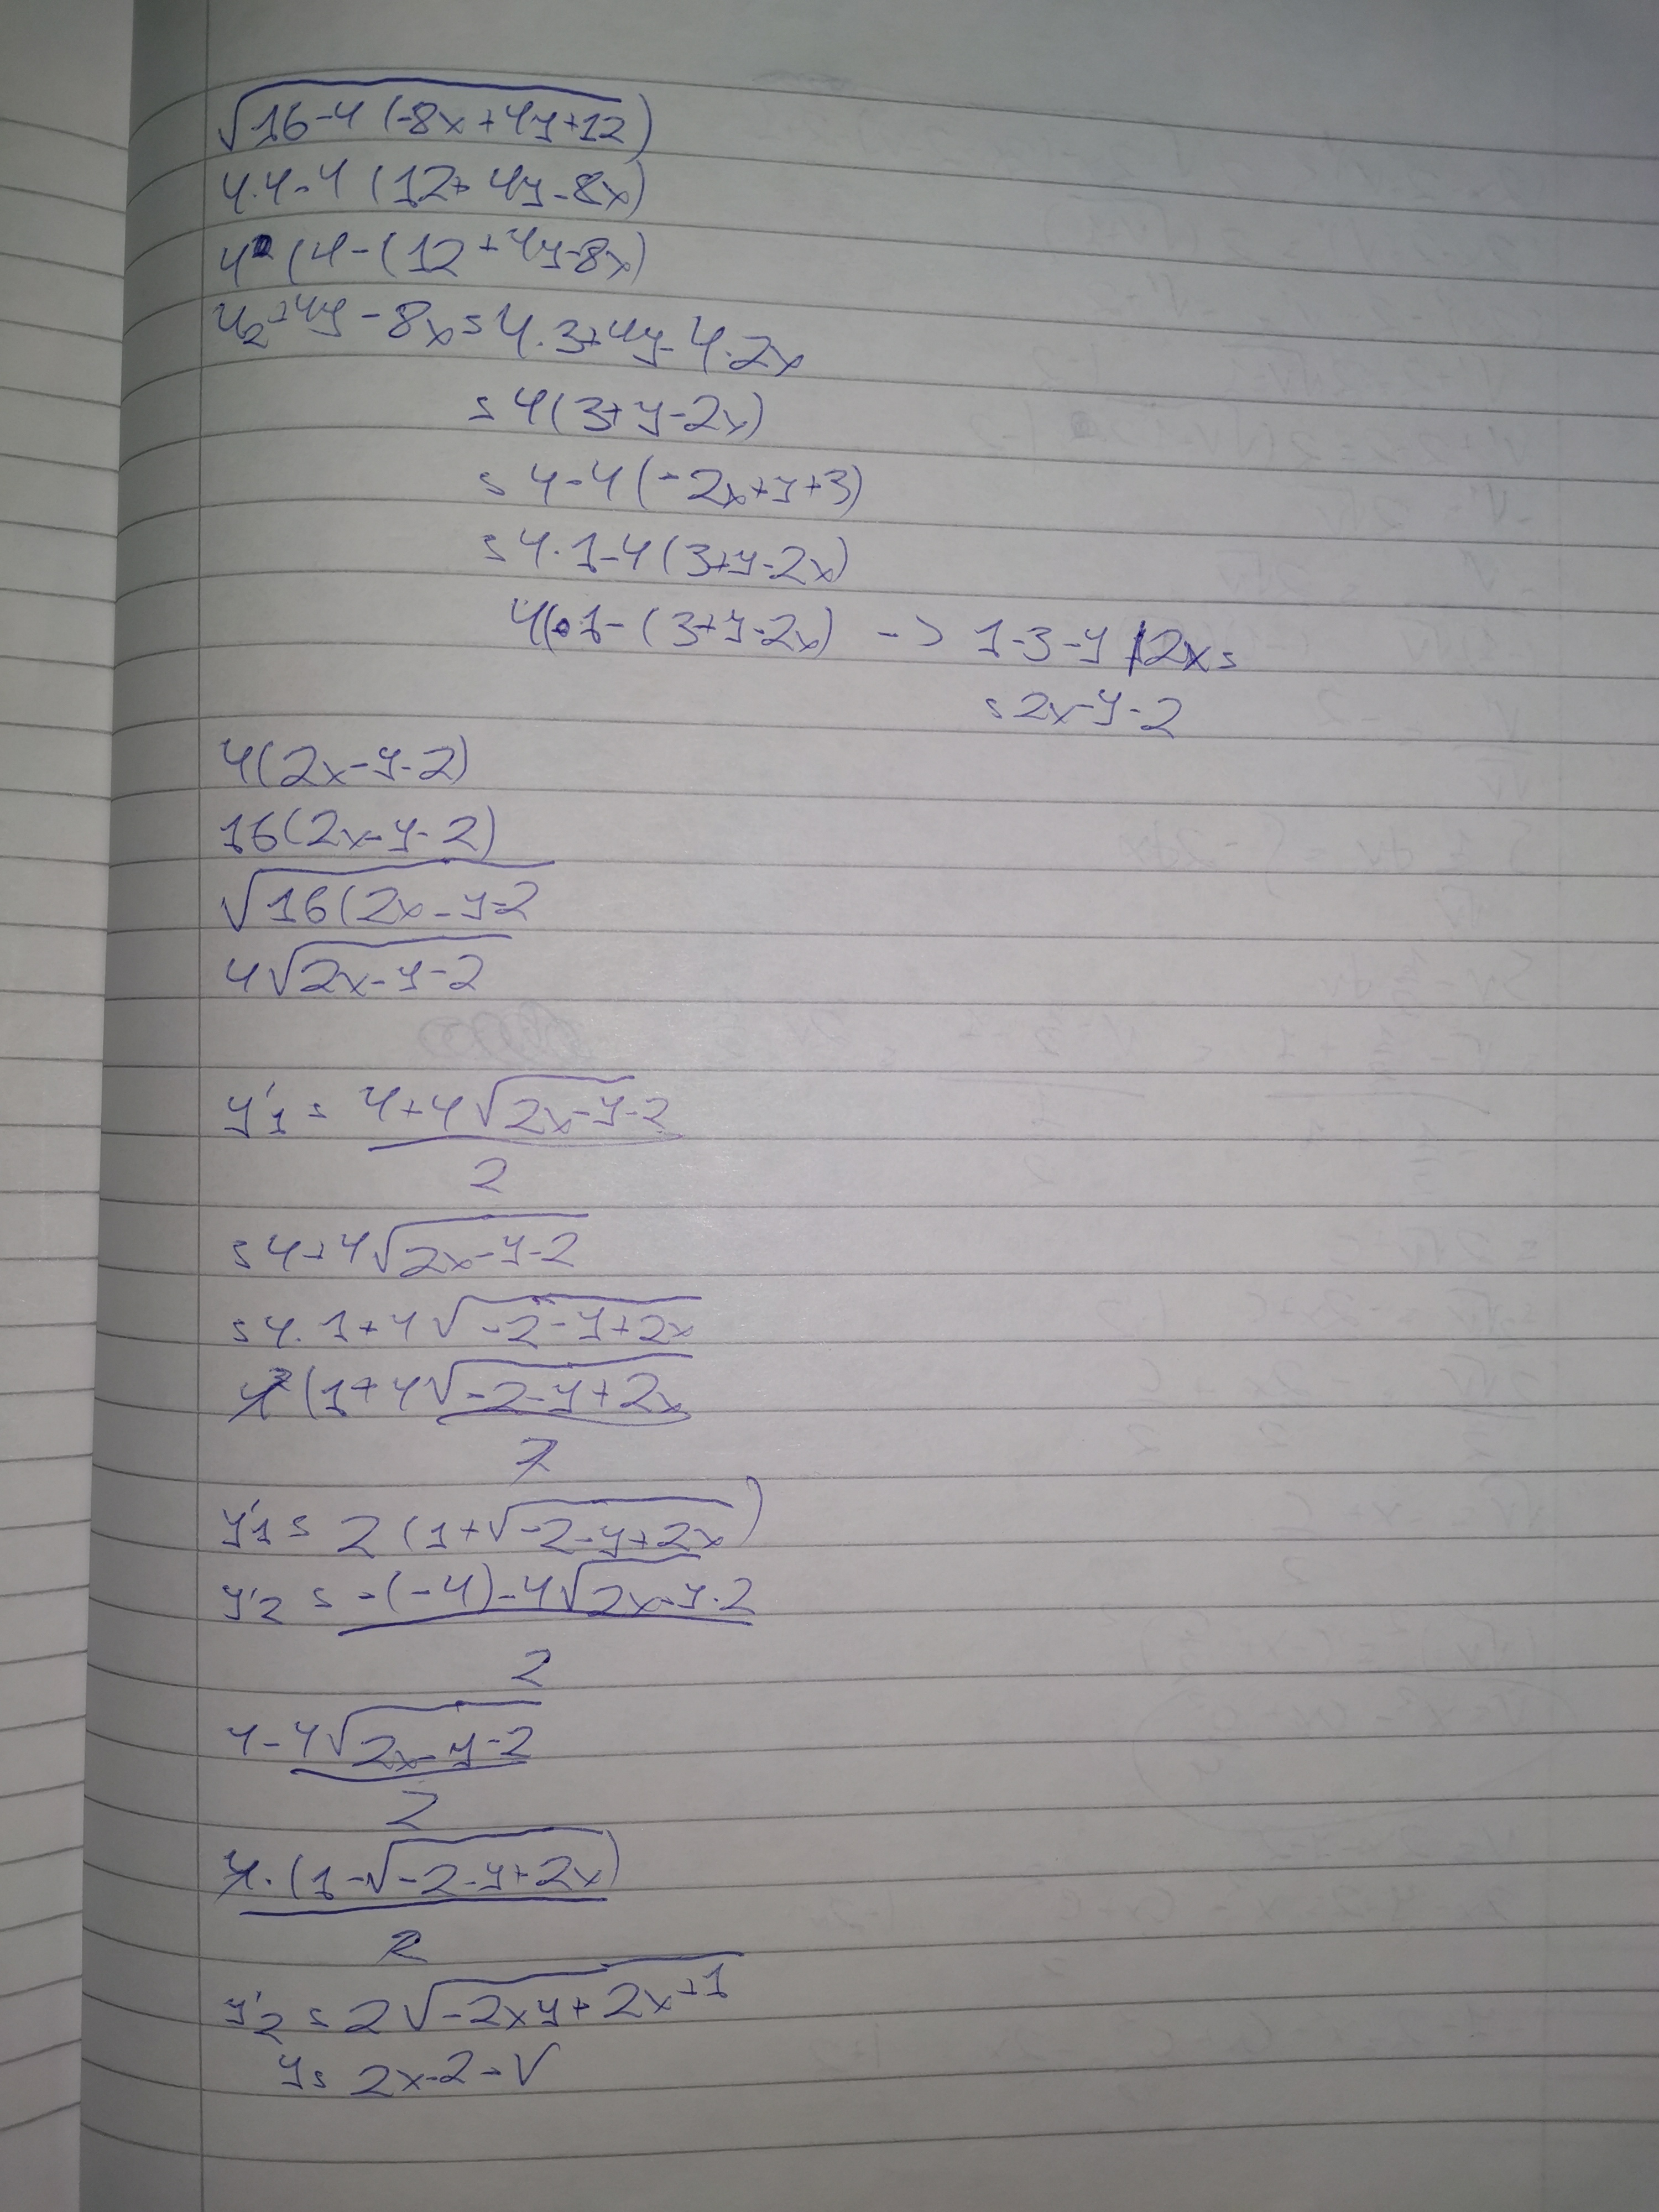 √16-4(-8x+4y+12)
4.4-4(12+4y-8x)
4(4-(12+4y-8x)
42+4y-8x=4.3+4y-4.2x
=4(3+y-2x)
=4-4(-2x+y+3)
=4.1-4(3+y-2x)
4(1-(3+y-2x) -> 1-3-y+2x=
=2x-y-2
4(2x-y-2)
16(2x-y-2)
√16(2x-y-2
4√2x-y-2
y'1 = 4+4√2x-y-2
2
=4+4√2x-y-2
=4.1+4√-2-y+2x
4(1+4√-2-y+2x
2
y'1 = 2(1+√-2-y+2x)
y'2 = -(-4)-4√2x-y-2
2
4-4√2x-y-2
2
4.(1-√-2-y+2x)
2
y'2 = 2√-2xy+2x+1
y= 2x-2-V